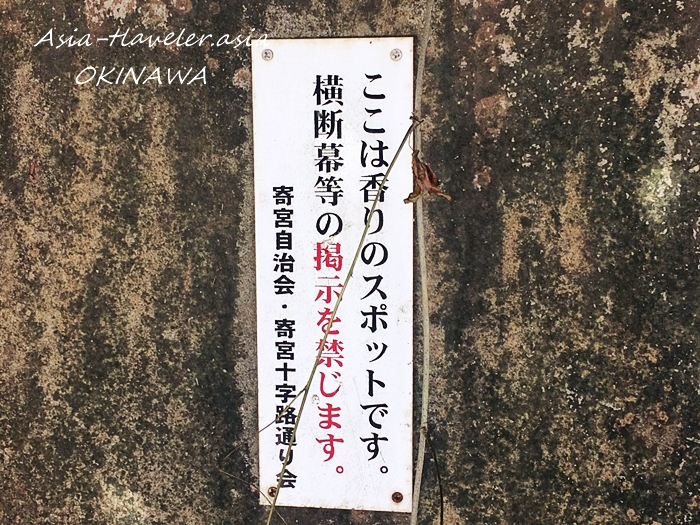 Asia-Traveler.asia
OKINAWA
ここは香りのスポットです。
横断幕等の掲示を禁じます。
寄宮自治会・寄宮十字路通り会